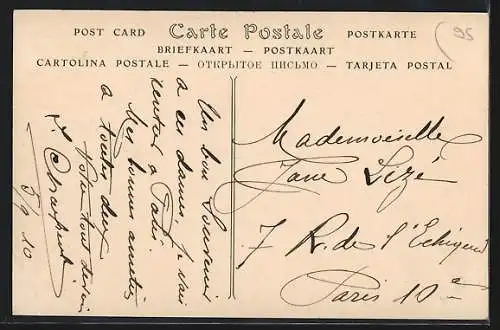 POST CARD Carte Postale POSTKARTE
BRIEFKAART — POSTKAART
CARTOLINA POSTALE — ОТКРЫТОЕ ПИСЬМО — TARJETA POSTAL
95
Un bon Souvenir
à ces dames. Je vais
rentrer à Paris.
Mes bonnes amitiés
à toutes deux
Votre tout dévoué
5/9 10
Mademoiselle
Jane Lezé
7 R. de l'Echiquier
Paris 10e